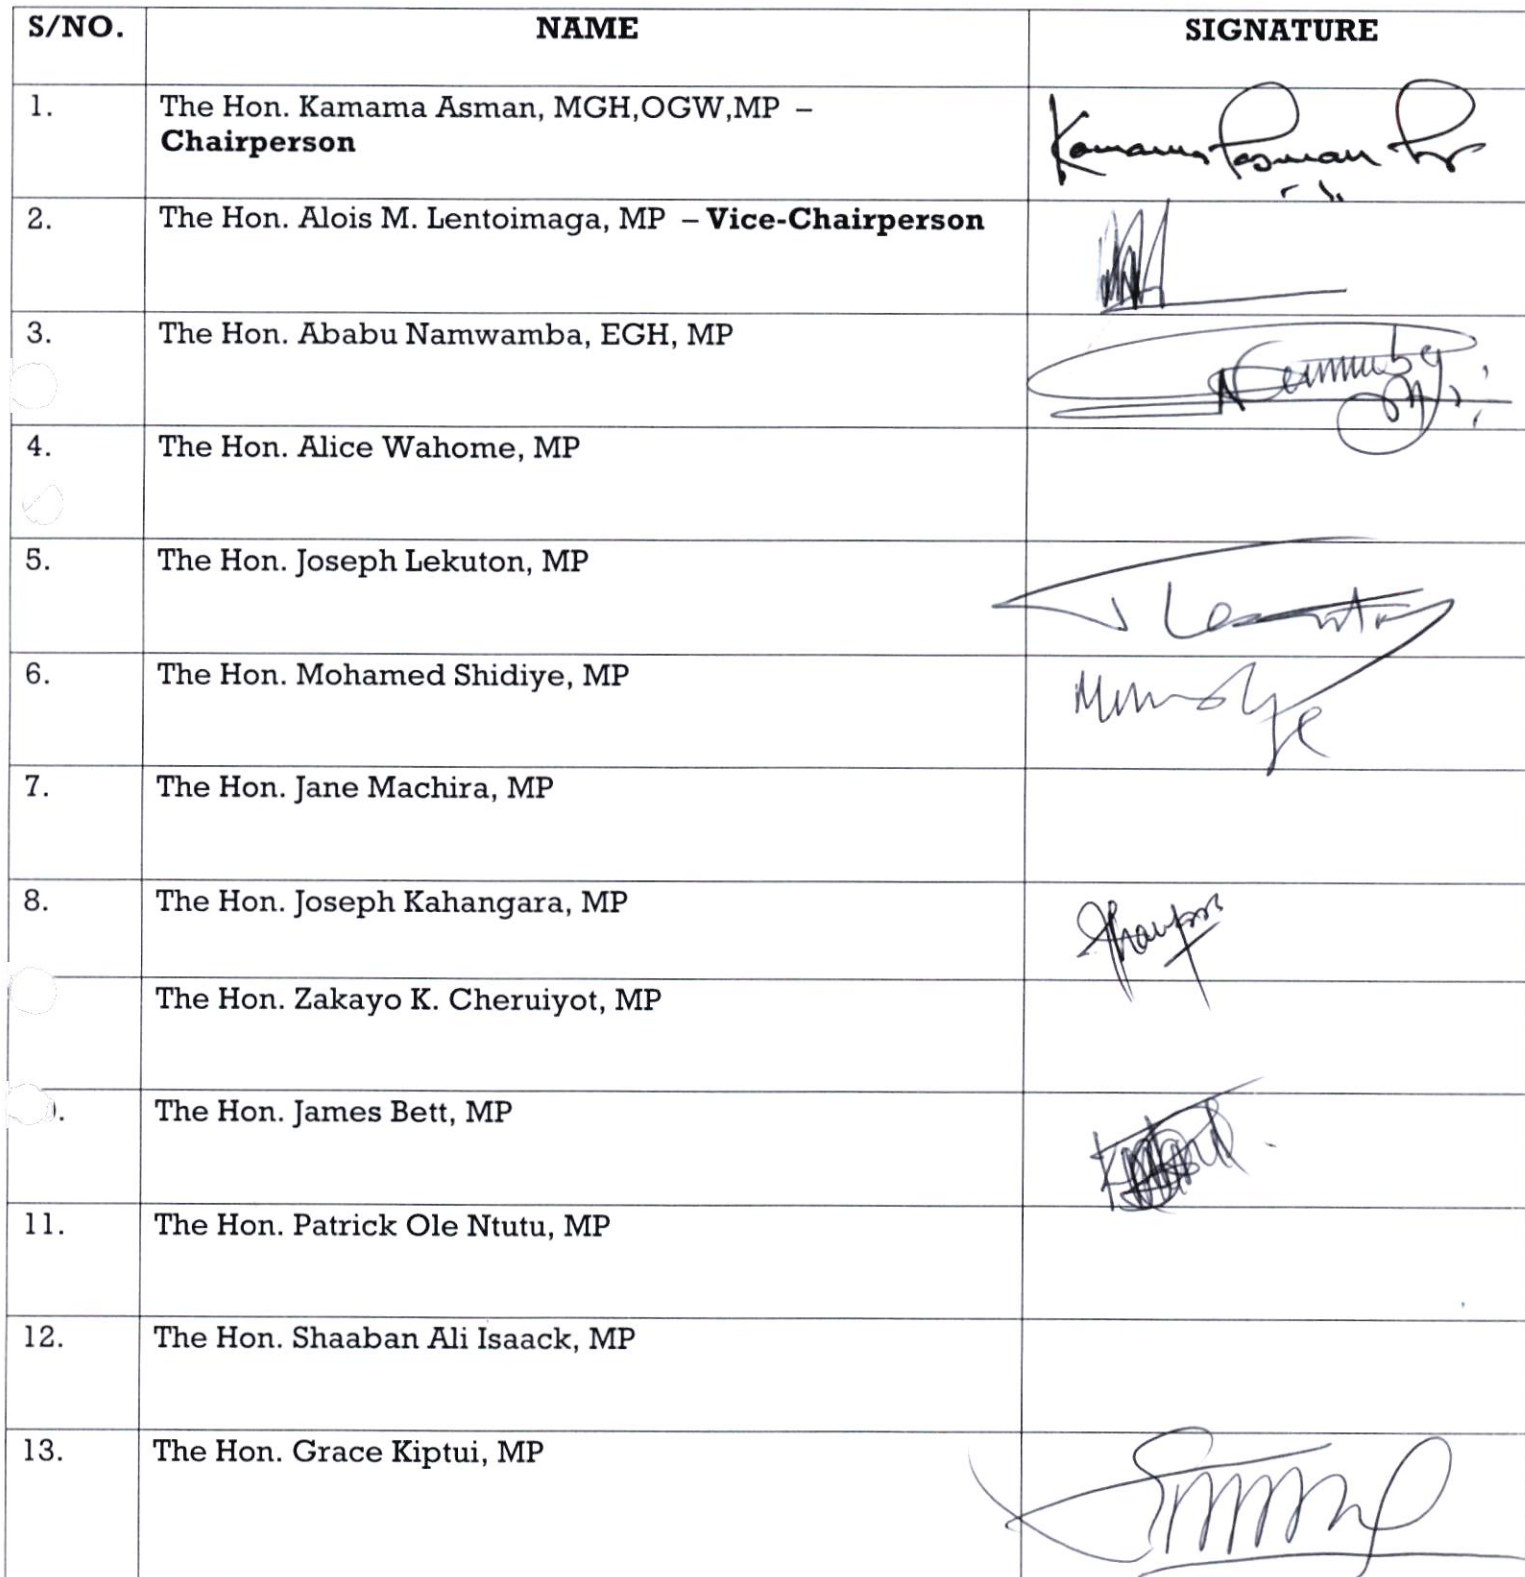 S/NO. NAME SIGNATURE
1. The Hon. Kamama Asman, MGH,OGW,MP –
Chairperson
Kamama Asman
2. The Hon. Alois M. Lentoimaga, MP – Vice-Chairperson
3. The Hon. Ababu Namwamba, EGH, MP
4. The Hon. Alice Wahome, MP
5. The Hon. Joseph Lekuton, MP
6. The Hon. Mohamed Shidiye, MP
7. The Hon. Jane Machira, MP
8. The Hon. Joseph Kahangara, MP
The Hon. Zakayo K. Cheruiyot, MP
The Hon. James Bett, MP
11. The Hon. Patrick Ole Ntutu, MP
12. The Hon. Shaaban Ali Isaack, MP
13. The Hon. Grace Kiptui, MP